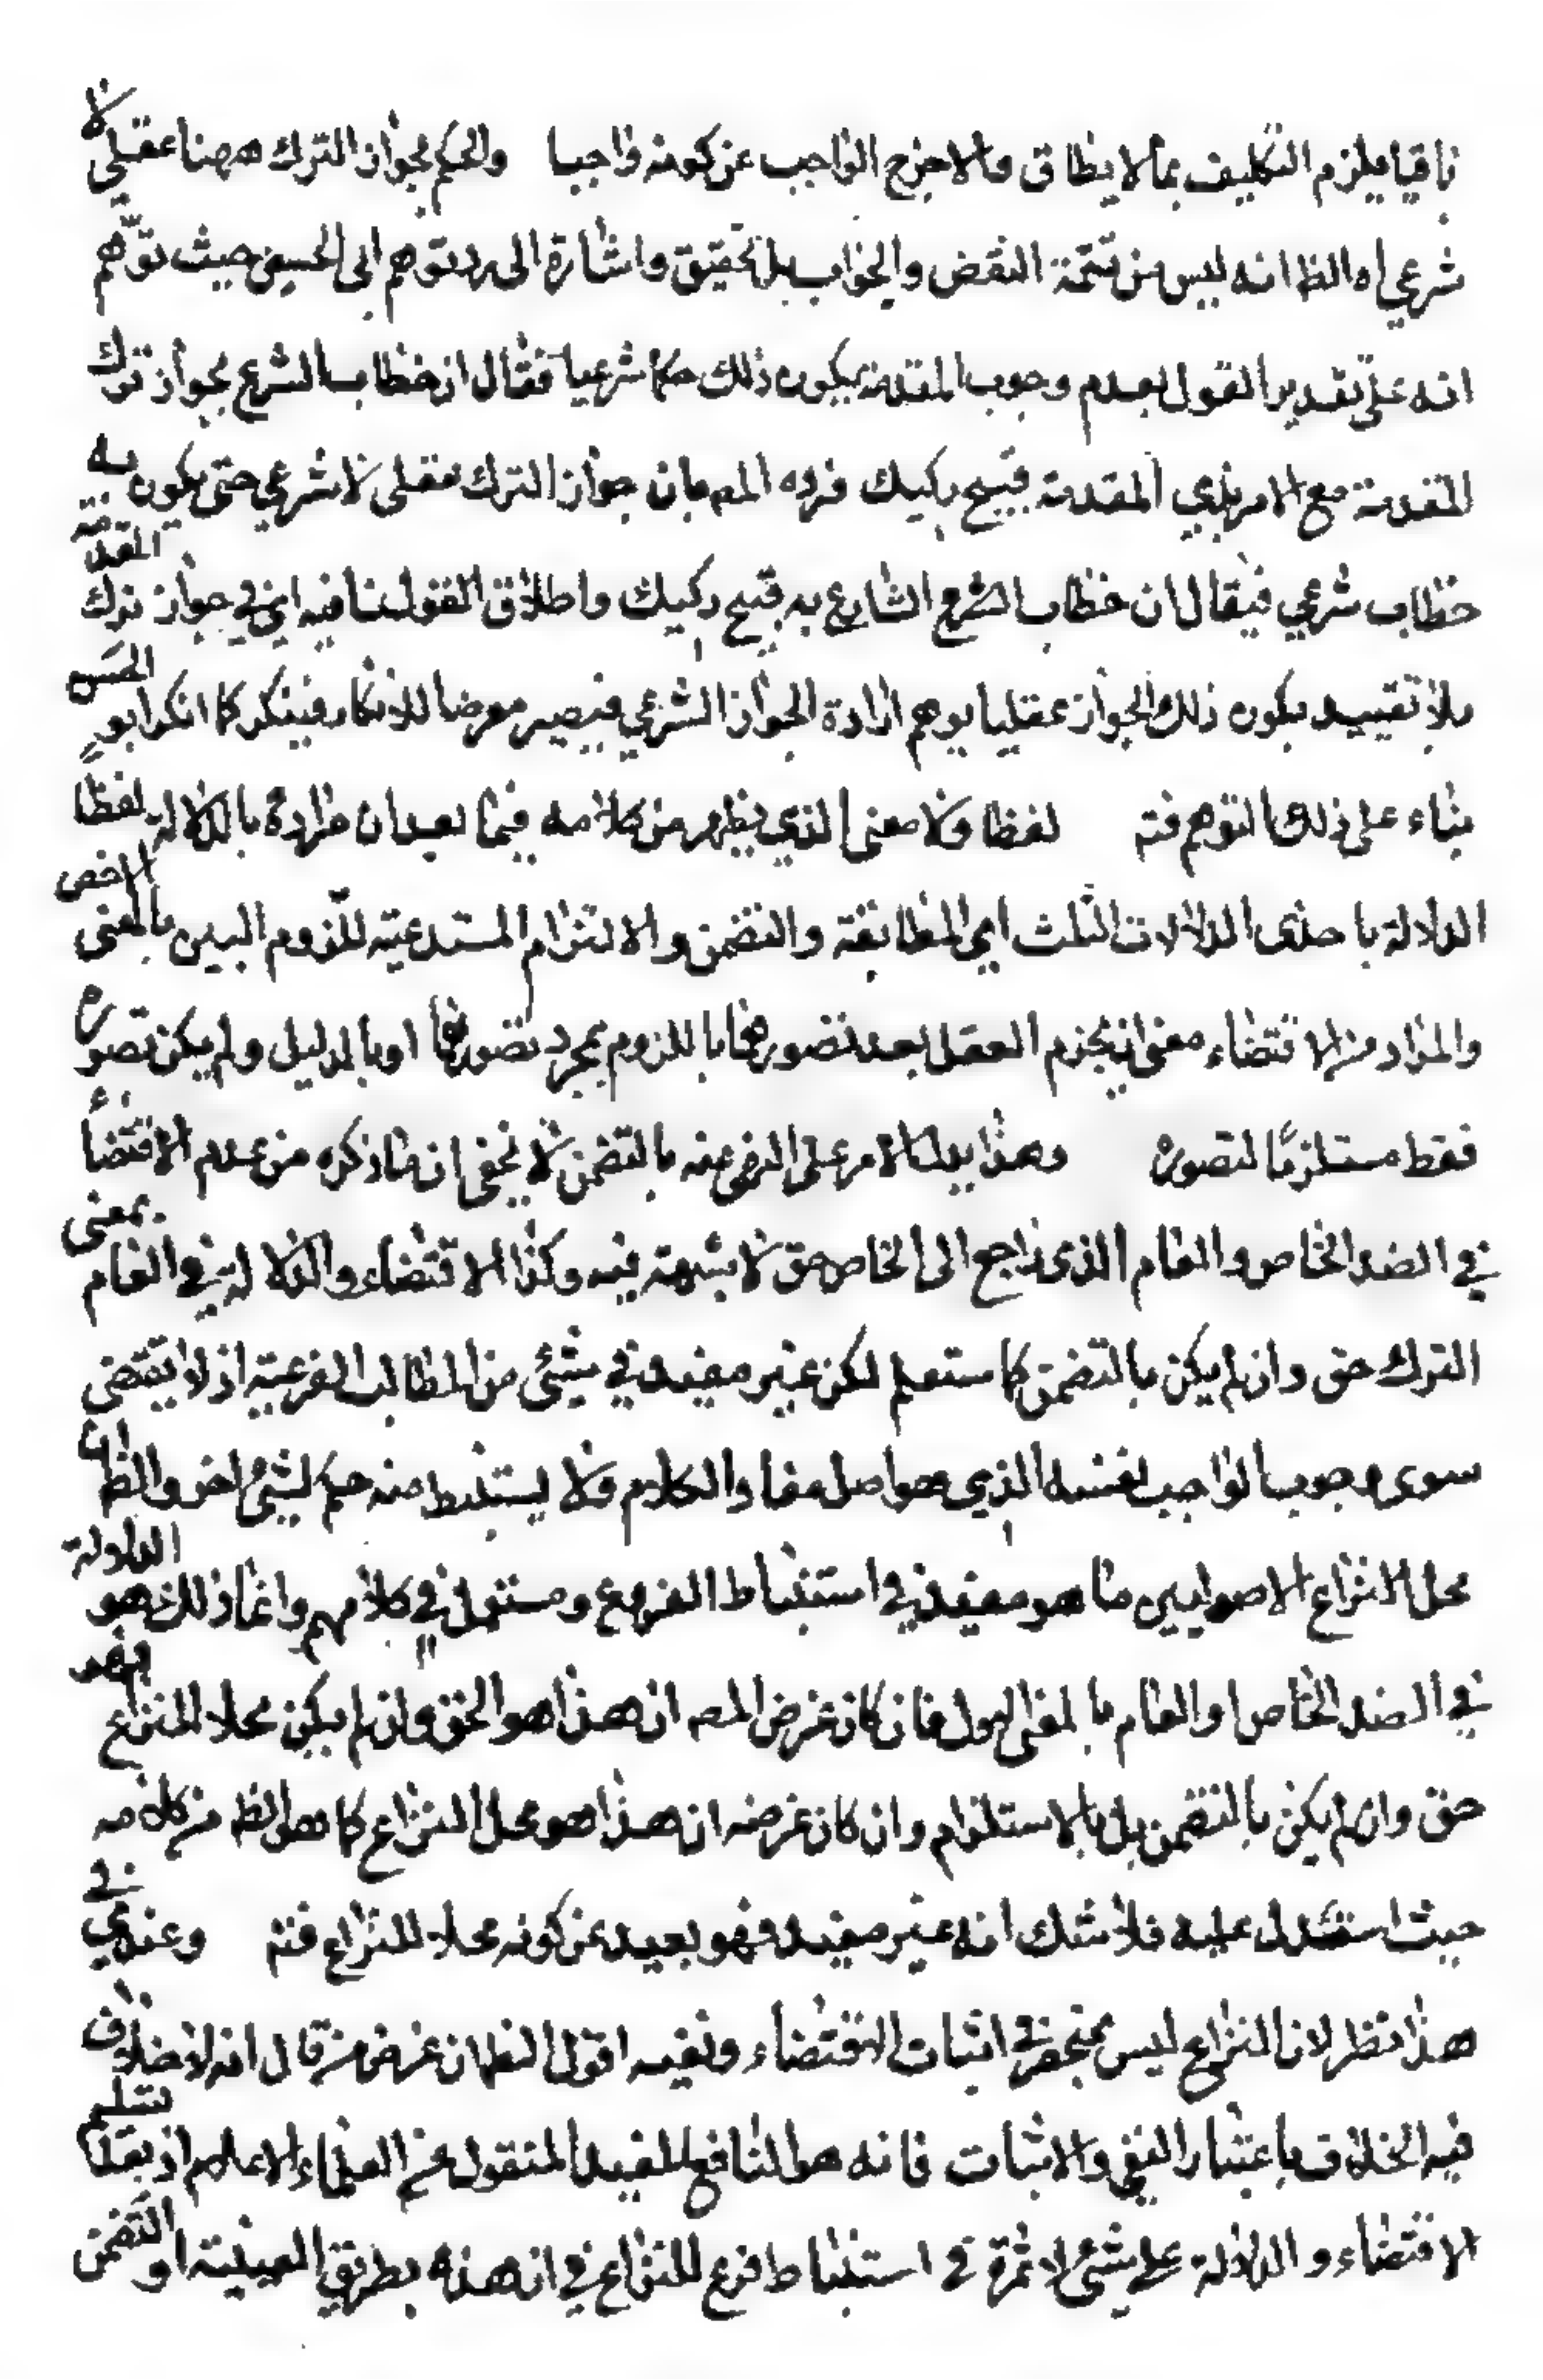 باقيا يلزم التكليف بما لا يطاق والا خرج الواجب عن كونه واجبا والحكم بجواز الترك ههنا عقلي لا
شرعي اه الظ انه ليس من تتمة النقض والجواب بل تحقيق واشارة الى رد توهم ابى الحسين حيث توهم
انه على تقدير القول بعدم وجوب المقدمة يكون ذلك حكما شرعيا فقال ان خطاب الشرع بجواز ترك
المقدمة مع الامر بذي المقدمة قبيح ركيك فرده المص بان جواز الترك عقلى لا شرعي حتى يكون به
خطاب شرعي فيقال ان خطاب الشرع الشارع به قبيح ركيك واطلاق القول فيه اي في جواز ترك المقدمة
بلا تقييد بكون ذلك الجواز عقليا يوهم ارادة الجواز الشرعي فيصير معرضا للانكار فينكر كما انكر ابو الحسين
بناء على ذلك التوهم فتم لفظا ولا معنى الذي يظهر من كلامه فيما بعد ان مراده بالدلالة لفظا
الدلالة باحدى الدلالات الثلث اي المطابقة والتضمن والالتزام المستدعية للزوم البين بالمعنى الاخص
والمراد من الاقتضاء معنى ان يجزم العقل بعد تصورهما باللزوم بمجرد تصورهما او بالدليل ولم يكن تصوره
فقط مستلزما لتصوره وهذا يدل الامر على النهي عنه بالتضمن لا يخفى ان ما ذكره من عدم الاقتضاء
في الضد الخاص والعام الذي راجع الى الخاص حق لا شبهة فيه وكذا الاقتضاء والدلالة في العام بمعنى
الترك حق وان لم يكن بالتضمن كما ستعلم لكن غير مفيد في شئ من المطالب الفرعية اذ لا يقتضى
سوى وجوب الواجب لنفسه الذي هو اصل مفاد الكلام ولا يستنبط منه حكم لشئ اخر والظ ان
محل النزاع الاصوليين ما هو مفيد في استنباط الفروع ومستعمل في كلامهم وانما ذلك هو الدلالة
في الضد الخاص او العام بالمعنى الاول فان كان غرض المص ان هذا هو الحق وان لم يكن محلا للنزاع فهو
حق وان لم يكن بالتضمن بل بالاستلزام وان كان غرضه ان هذا هو محل النزاع كما هو الظ من كلامه
حيث استدل عليه فلا شك انه غير مفيد فهو بعيد عن كونه محلا للنزاع فتم وعندي في
هذا نظر لان النزاع ليس بمنحصر في اثبات الاقتضاء ونفيه اقول الظ ان غرض من قال انه لا خلاف
فيه الخلاف باعتبار النفي والاثبات فانه هو النافع المفيد المنقول عن العلماء الاعلام اذ بعد تسليم
الاقتضاء والدلالة على شئ لا ثمرة في استنباط فرع للنزاع في ان هذه بطريق العينية او التضمن